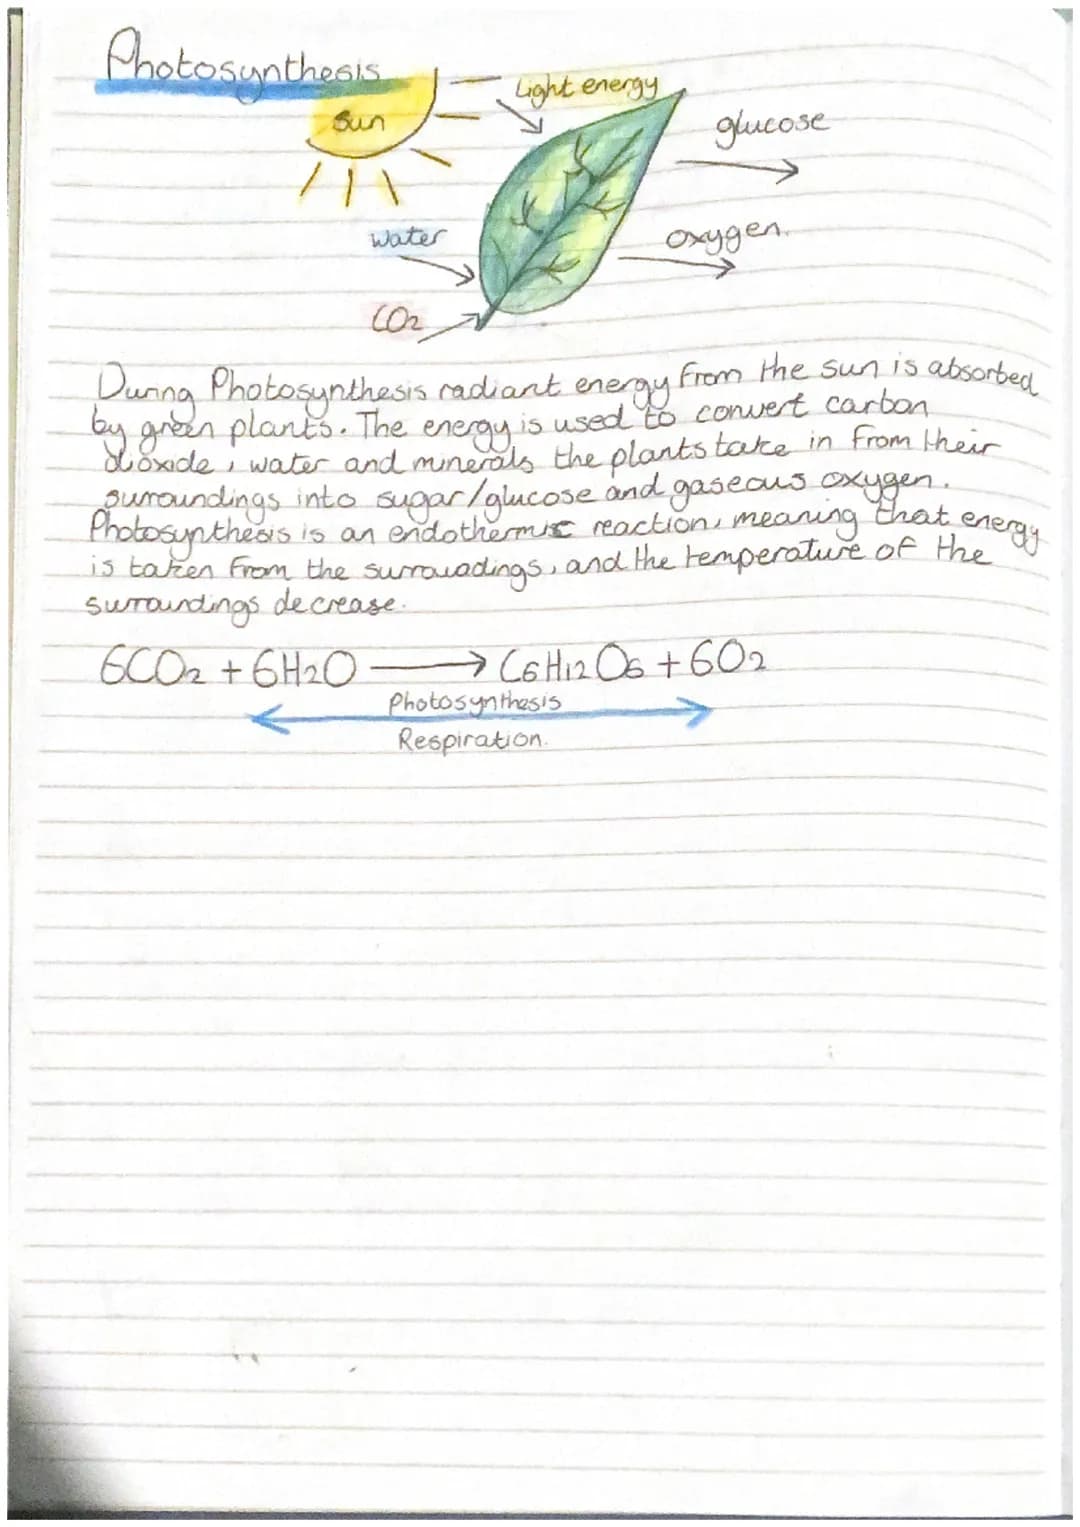 Photosynthesis
Sun
Light energy
glucose
water
oxygen.
CO2
During Photosynthesis radiant energy from the sun is absorbed
by green plants. The energy is used to convert carbon
dioxide, water and minerals the plants take in from their
surroundings into sugar/glucose and gaseous oxygen.
Photosynthesis is an endothermic reaction, meaning that energy
is taken from the surrouadings, and the temperature of the
surroundings decrease.
6CO2 + 6H2O → C6H12O6 + 6O2
Photosynthesis
Respiration.